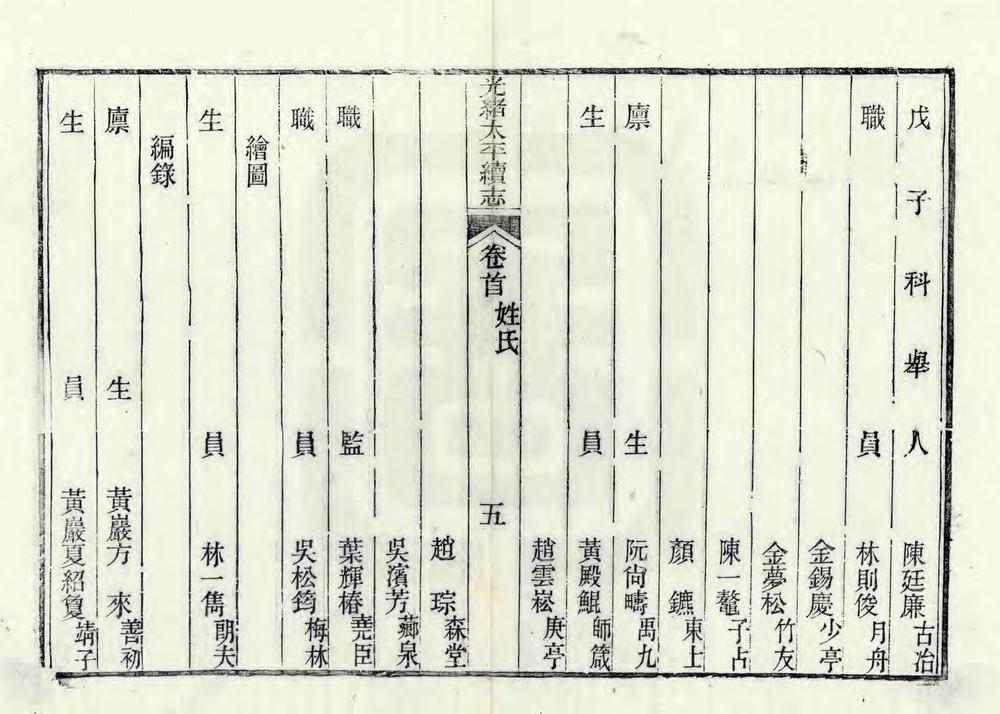 戊子科舉人 陳廷廉古冶
職員 林則俊月舟
金錫慶少亭
金夢松竹友
陳一鼇子占
顏鑣東上
廩生 阮尙疇禹九
生員 黃殿鯤師箴
趙雲崧庚亭
光緖太平續志 卷首 姓氏 五
趙琮森堂
吳濱芳薌泉
職監 葉輝椿堯臣
職員 吳松筠梅林
繪圖
生員 林一雋朗夫
編錄
廩生 黃巖方來善初
生員 黃巖夏紹負靖子